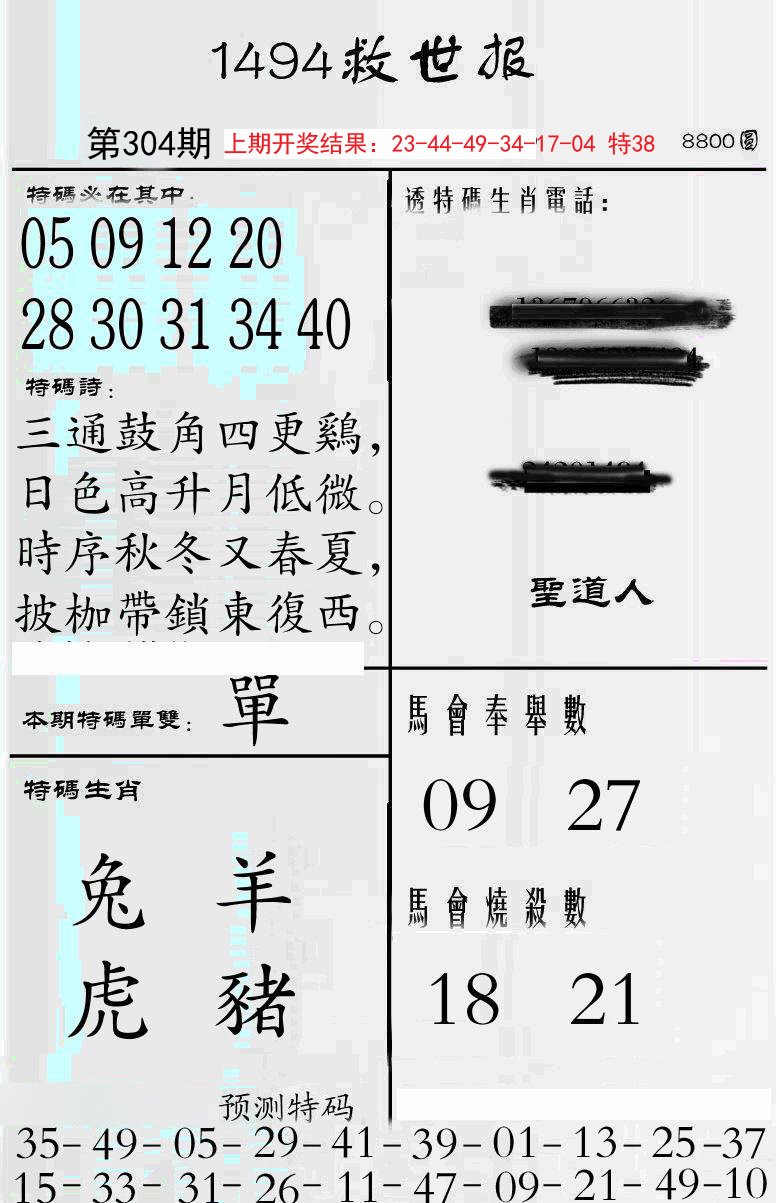 1494救世报
第304期 上期开奖结果：23-44-49-34-17-04 特38 8800圆
特碼必在其中：
05 09 12 20
28 30 31 34 40
特碼詩：
三通鼓角四更鷄，
日色高升月低微。
時序秋冬又春夏，
披枷帶鎖東復西。
本期特碼單雙： 單
特碼生肖
兔 羊
虎 豬
透特碼生肖電話：
聖道人
馬會奉舉數
09 27
馬會燒殺數
18 21
预测特码
35-49-05-29-41-39-01-13-25-37
15-33-31-26-11-47-09-21-49-10